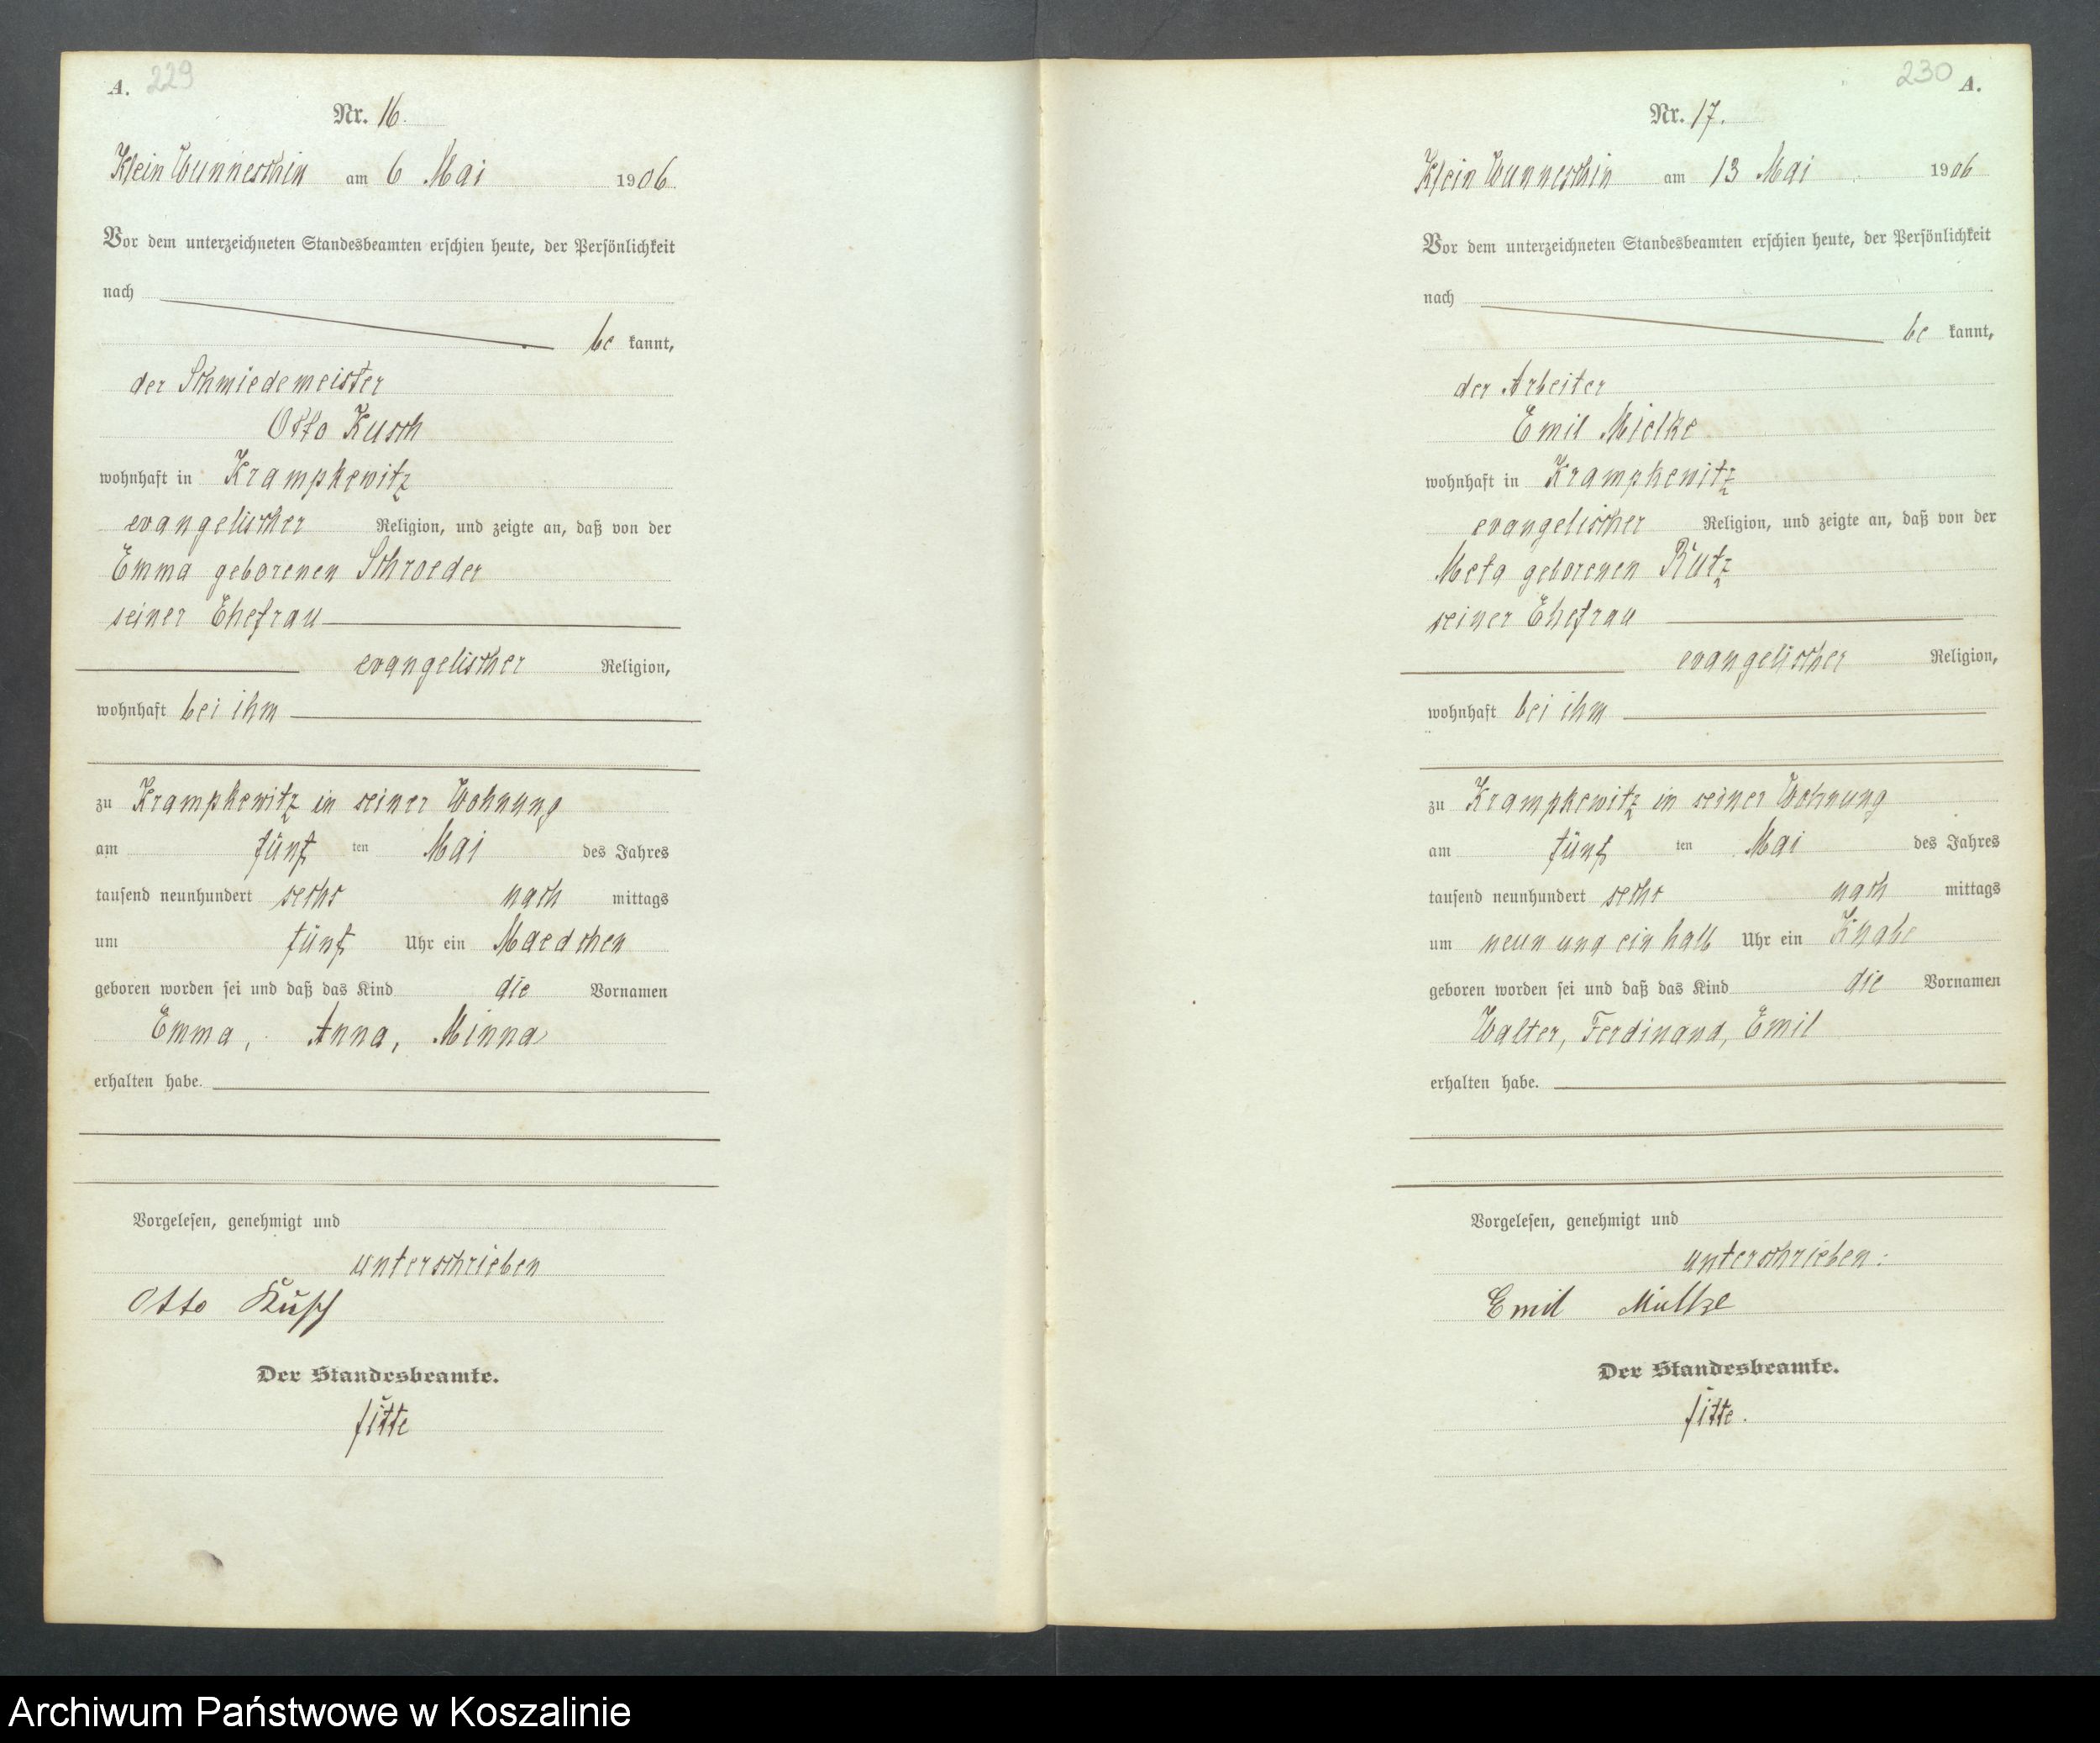 A. 229
Nr. 16.
Klein Wunneschin am 6 Mai 1906.
Vor dem unterzeichneten Standesbeamten erschien heute, der Persönlichkeit
nach
be kannt,
der Schmiedemeister
Otto Kusch
wohnhaft in Krampkewitz
evangelischer Religion, und zeigte an, daß von der
Emma geborenen Schroeder
seiner Ehefrau
evangelischer Religion,
wohnhaft bei ihm
zu Krampkewitz in seiner Wohnung
am fünf ten Mai des Jahres
tausend neunhundert sechs nach mittags
um fünf Uhr ein Maedchen
geboren worden sei und daß das Kind die Vornamen
Emma, Anna, Minna
erhalten habe.
Vorgelesen, genehmigt und
unterschrieben
Otto Kusch
Der Standesbeamte.
230 A.
Nr. 17.
Klein Wunneschin am 13 Mai 1906
Vor dem unterzeichneten Standesbeamten erschien heute, der Persönlichkeit
nach
be kannt,
der Arbeiter
Emil Mielke
wohnhaft in Krampkewitz
evangelischer Religion, und zeigte an, daß von der
Meta geborenen Rutz
seiner Ehefrau
evangelischer Religion,
wohnhaft bei ihm
zu Krampkewitz in seiner Wohnung
am fünf ten Mai des Jahres
tausend neunhundert sechs nach mittags
um neun und ein halb Uhr ein Knabe
geboren worden sei und daß das Kind die Vornamen
Walter, Ferdinand, Emil
erhalten habe.
Vorgelesen, genehmigt und
unterschrieben:
Emil Mielke
Der Standesbeamte.
Archiwum Państwowe w Koszalinie